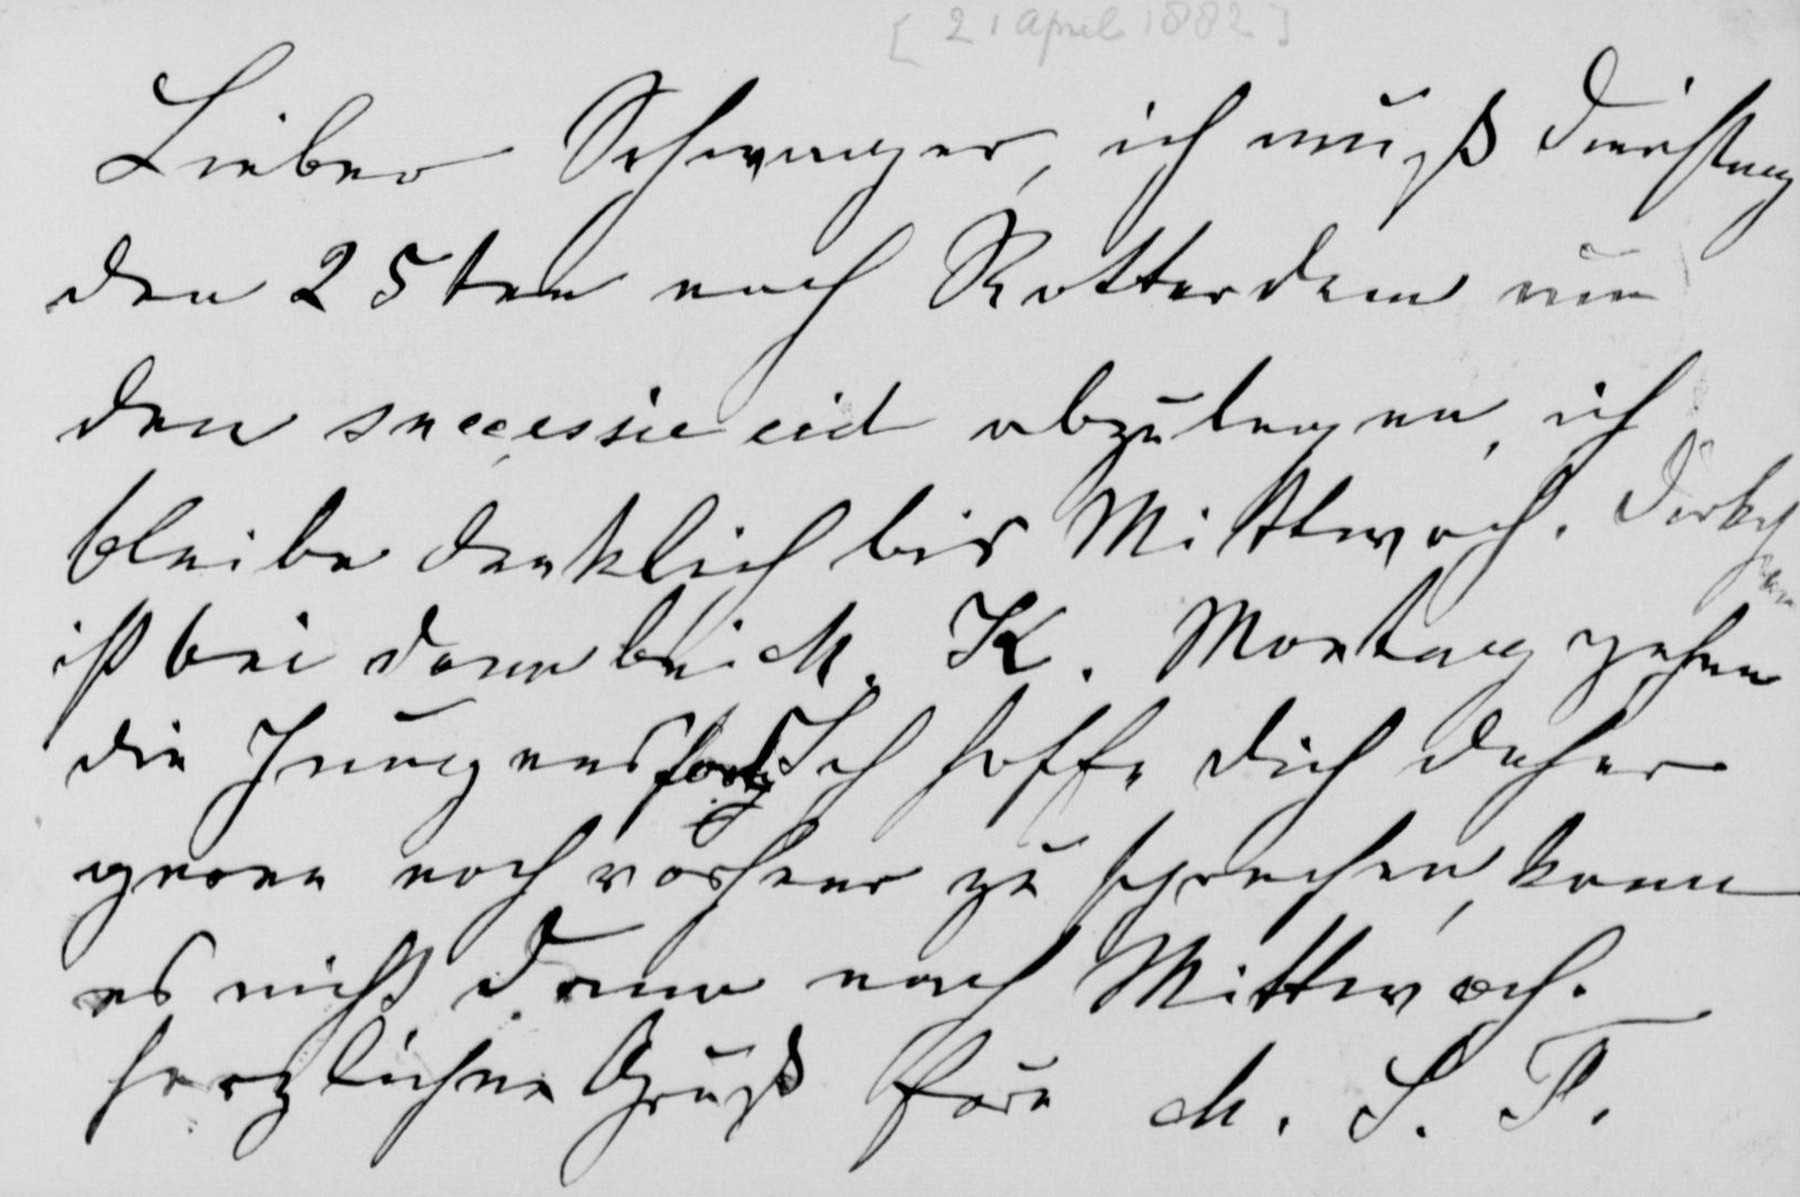 [21 april 1882]
Lieber Schwager, ich muß Dienstag
den 25ten nach Rotterdam um
den successie eid abzulegen, ich
bleibe denklich bis Mittwoch.
ist bei dann bei M. K. Montag gehen
die Jungens fort Ich hoffe dich daher
gerne noch vorher zu sprechen, kann
es nicht dann nach Mittwoch.
herzlichen Gruß Eure M. S. T.